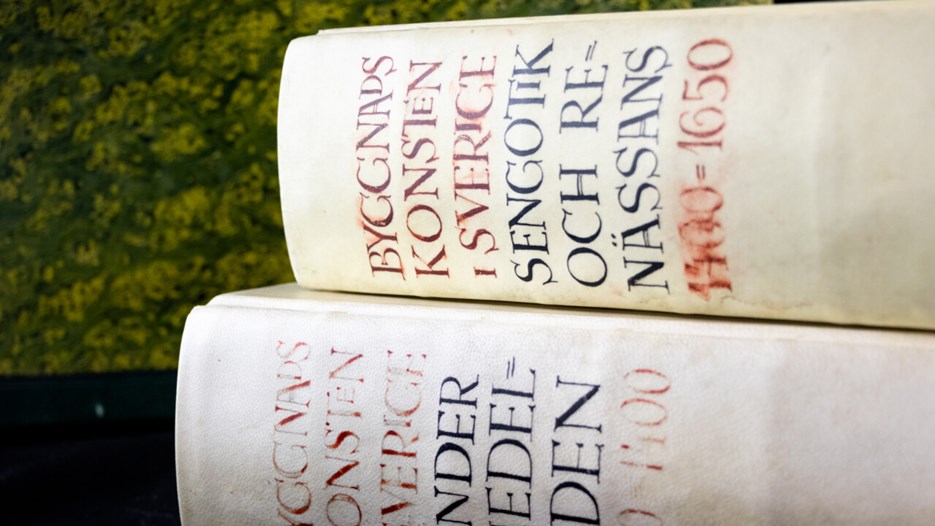 BYGGNADS
KONSTEN
I SVERIGE
SENGOTIK
OCH RE=
NÄSSANS
1400=1650
YGGNADS
ONSTEN
VERIGE
NDER
EDEL=
DEN
1400